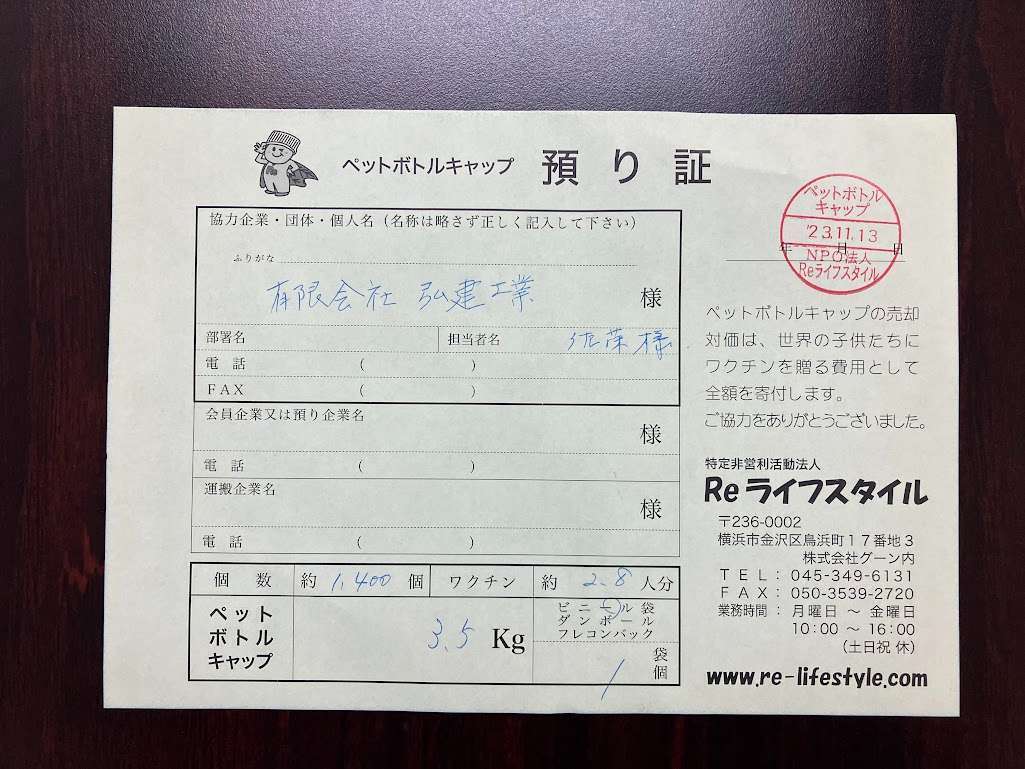 ペットボトルキャップ 預り証
協力企業・団体・個人名（名称は略さず正しく記入して下さい）
ふりがな
有限会社 弘建工業 様
部署名 担当者名 佐藤 様
電 話 ( )
FAX ( )
会員企業又は預り企業名
様
電 話 ( )
運搬企業名
様
電 話 ( )
個 数 約 1,400 個 ワクチン 約 2.8 人分
ペット
ボトル
キャップ
3.5 Kg
ビニール袋
ダンボール
フレコンバック
1 袋
個
ペットボトル
キャップ
'23.11.13
年 月 日
NPO法人
Reライフスタイル
ペットボトルキャップの売却
対価は、世界の子供たちに
ワクチンを贈る費用として
全額を寄付します。
ご協力をありがとうございました。
特定非営利活動法人
Re ライフスタイル
〒236-0002
横浜市金沢区鳥浜町１７番地３
株式会社グーン内
ＴＥＬ： 045-349-6131
ＦＡＸ： 050-3539-2720
業務時間： 月曜日 ～ 金曜日
10:00 ～ 16:00
（土日祝 休）
www.re-lifestyle.com